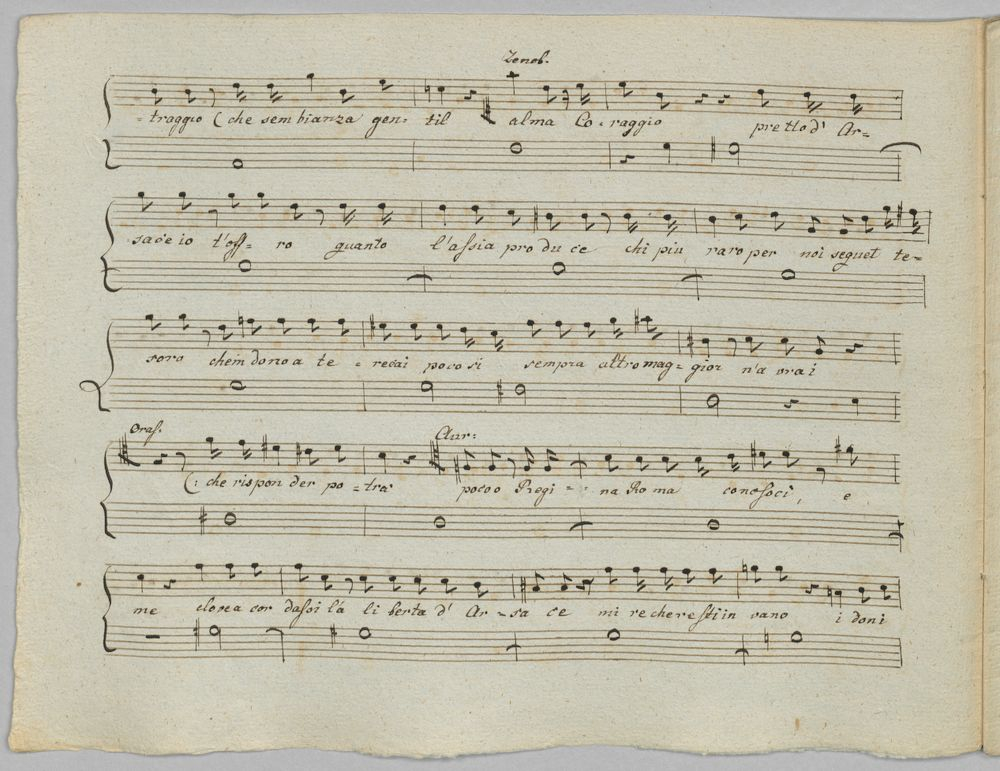 Zenob.
=traggio (che sembianza gen= til alma Co=raggio pretto d' Ar=
sace io t'off= ro quanto l'assia produce chi piu raro per noi seguet te=
soro chein dono a te = recai poco si sempra altro mag= gior n'a vrai
Oras. Aur:
(: che rispon der po=tra poco o Regi = na Roma conosoci, e
me clopea cor dasoi la li berta d' Ar=sa ce mi recheresti in vano i doni